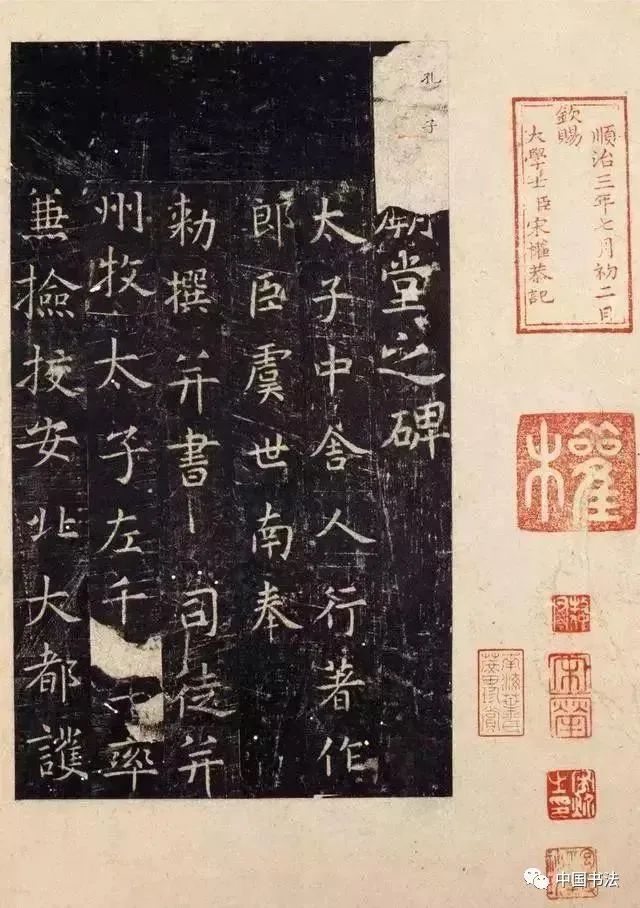 順治三年七月初二日
欽賜
大學士臣宋權恭記
權
孔子
廟堂之碑
太子中舍人行著作
郎臣虞世南奉
勑撰并書 司徒并
州牧太子左千 率
兼撿挍安北大都護
中国书法